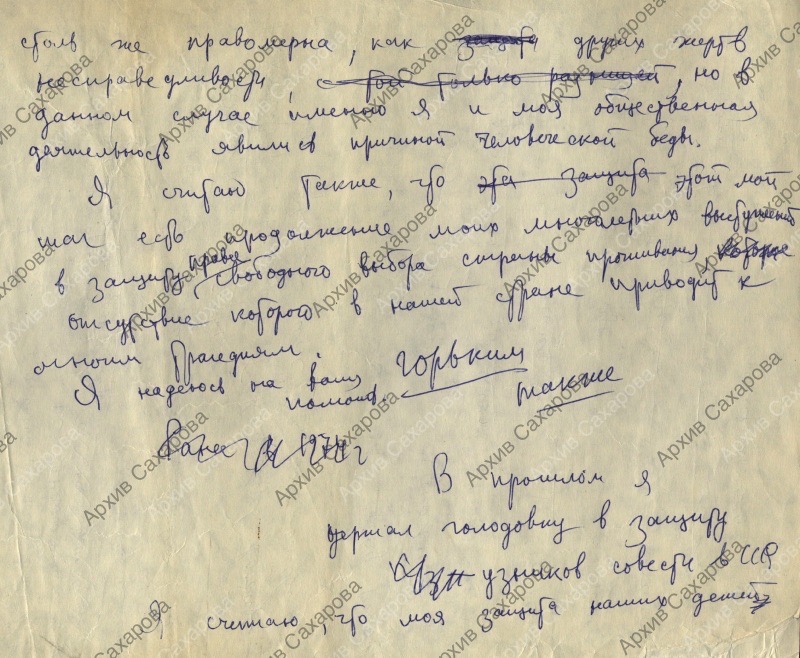 столь же правомерна, как защита других жертв
несправедливости, но в
данном случае именно я и моя общественная
деятельность явились причиной человеческой беды.
Я считаю также, что эта защита этот мой
шаг есть продолжение моих многолетних выступлений
в защиту права свободного выбора страны проживания которое
отсутствие которого в нашей стране приводит к
многим трагедиям. горьким
Я надеюсь на вашу также
помощь.
Ранее
В прошлом я
держал голодовку в защиту
узников совести в СССР
Я считаю, что моя защита наших детей
Архив Сахарова